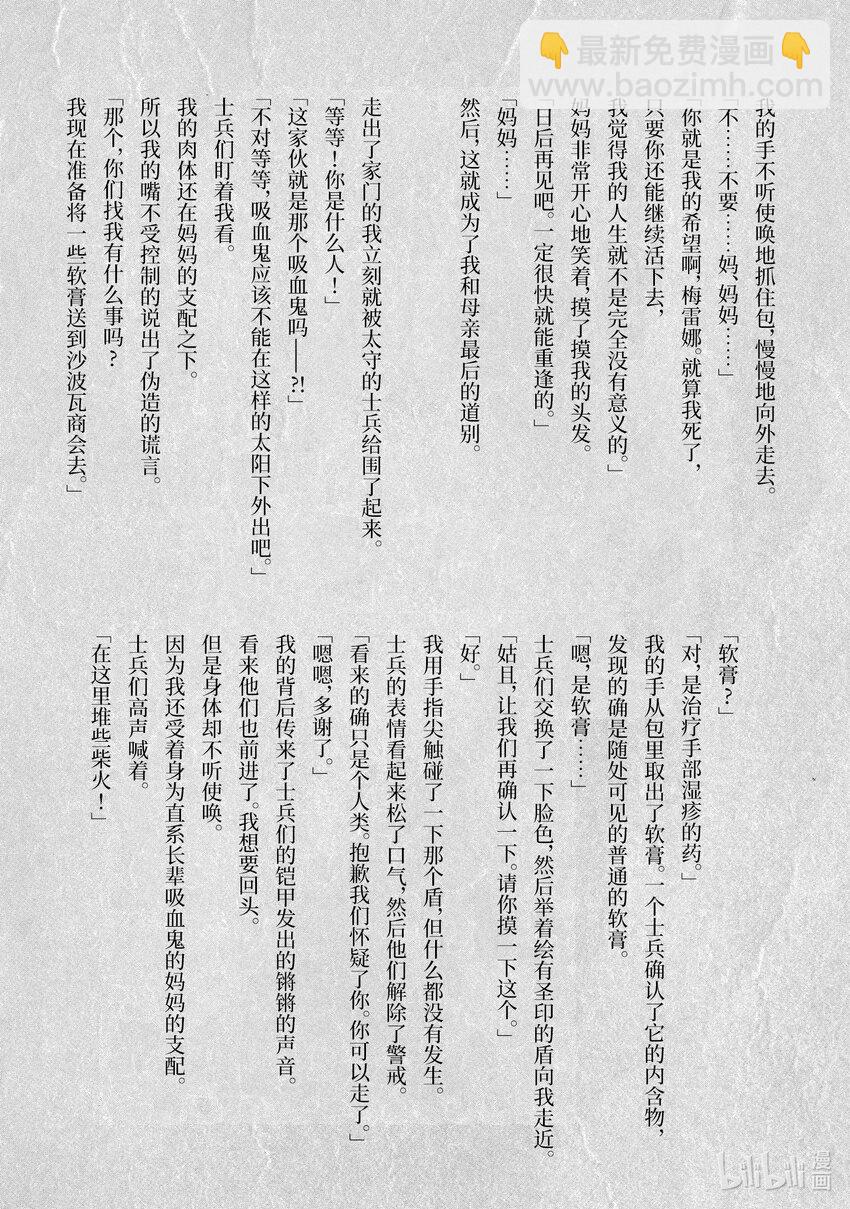 最新免费漫画
www.baozimh.com
我的手不听使唤地抓住包，慢慢地向外走去。
「不……不要……妈、妈妈……」
「你就是我的希望啊，梅雷娜。就算我死了，
只要你还能继续活下去，
我觉得我的人生就不是完全没有意义的。」
妈妈非常开心地笑着，摸了摸我的头发。
「日后再见吧。一定很快就能重逢的。」
「妈妈……」
然后，这就成为了我和母亲最后的道别。
走出了家门的我立刻就被太守的士兵给围了起来。
「等等！你是什么人！」
「这家伙就是那个吸血鬼吗——?!」
「不对等等，吸血鬼应该不能在这样的太阳下外出吧。」
士兵们盯着我看。
我的肉体还在妈妈的支配之下。
所以我的嘴不受控制的说出了伪造的谎言。
「那个，你们找我有什么事吗？
我现在准备将一些软膏送到沙波瓦商会去。」
「软膏？」
「对，是治疗手部湿疹的药。」
我的手从包里取出了软膏。一个士兵确认了它的内含物，
发现的确是随处可见的普通的软膏。
「嗯，是软膏……」
士兵们交换了一下脸色，然后举着绘有圣印的盾向我走近。
「姑且，让我们再确认一下。请你摸一下这个。」
「好。」
我用手指尖触碰了一下那个盾，但什么都没有发生。
士兵的表情看起来松了口气，然后他们解除了警戒。
「看来的确只是个人类。抱歉我们怀疑了你。你可以走了。」
「嗯嗯，多谢了。」
我的背后传来了士兵们的铠甲发出的锵锵的声音。
看来他们也前进了。我想要回头。
但是身体却不听使唤。
因为我还受着身为直系长辈吸血鬼的妈妈的支配。
士兵们高声喊着。
「在这里堆些柴火！」
bilibili漫画